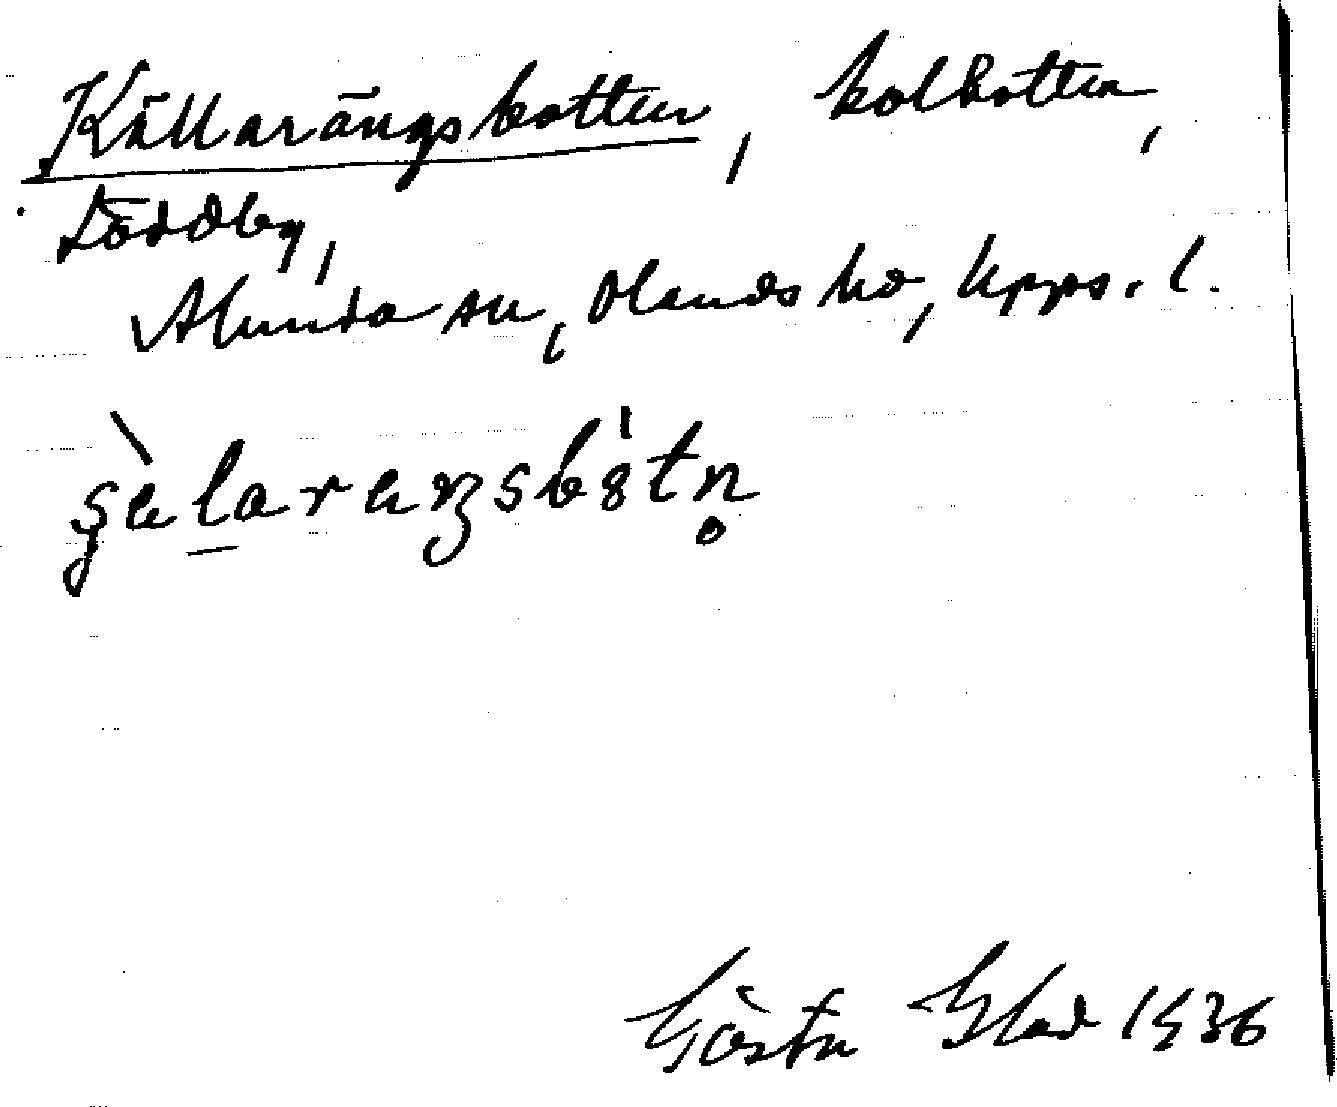 Källarängsbotten, kolbotten,
Löddby,
Alunda sn, Olands hd, Upps. l.
Gösta Blad 1936